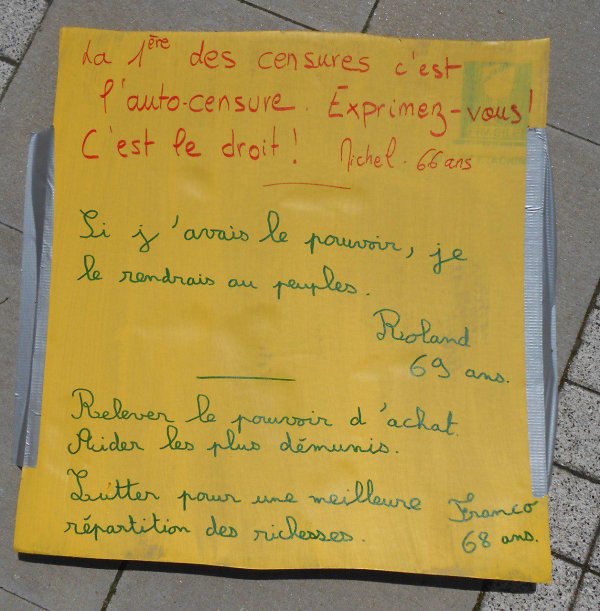 La 1ère des censures c'est
l'auto-censure. Exprimez-vous!
C'est le droit! Michel. 66 ans
Si j'avais le pouvoir, je
le rendrais au peuples.
Roland
69 ans.
Relever le pouvoir d'achat.
Aider les plus démunis.
Lutter pour une meilleure
répartition des richesses.
Franco
68 ans.